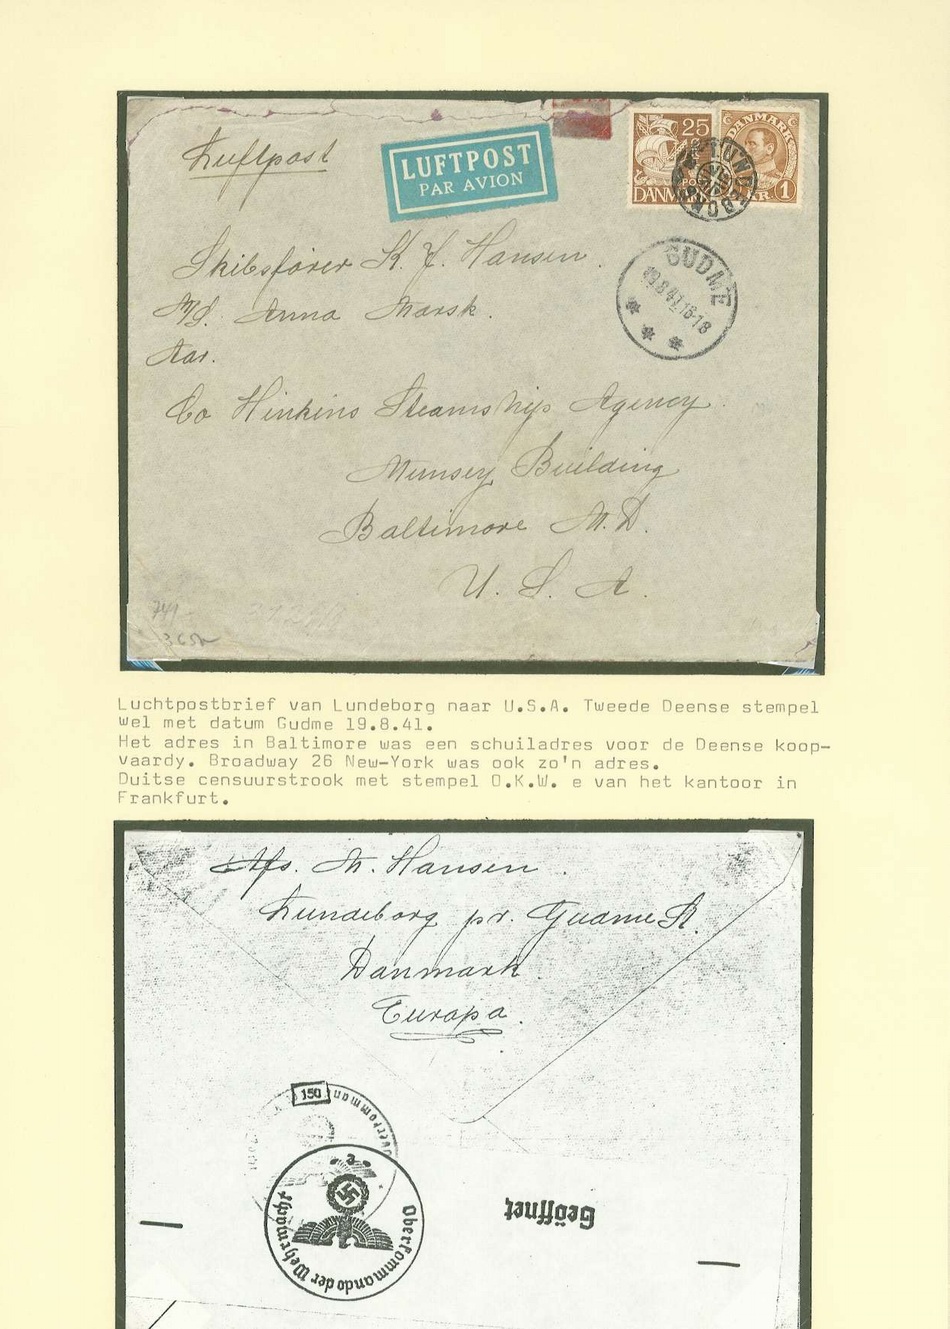 Luftpost
LUFTPOST
PAR AVION
25
DANMARK
DANMARK
1
KR
LUNDEBORG
GUDME
19.8.41.16-18
Skibsfører K. J. Hansen.
M/S. Anna Mærsk.
Aar.
Co Hinkins Steamships Agency
Munsey Building
Baltimore M.D.
U. S. A.
Luchtpostbrief van Lundeborg naar U.S.A. Tweede Deense stempel
wel met datum Gudme 19.8.41.
Het adres in Baltimore was een schuiladres voor de Deense koop-
vaardy. Broadway 26 New-York was ook zo'n adres.
Duitse censuurstrook met stempel O.K.W. e van het kantoor in
Frankfurt.
Afs. M. Hansen.
Lundeborg pr. Gudme St.
Danmark.
Europa.
150
Oberkommando der Wehrmacht
Geöffnet